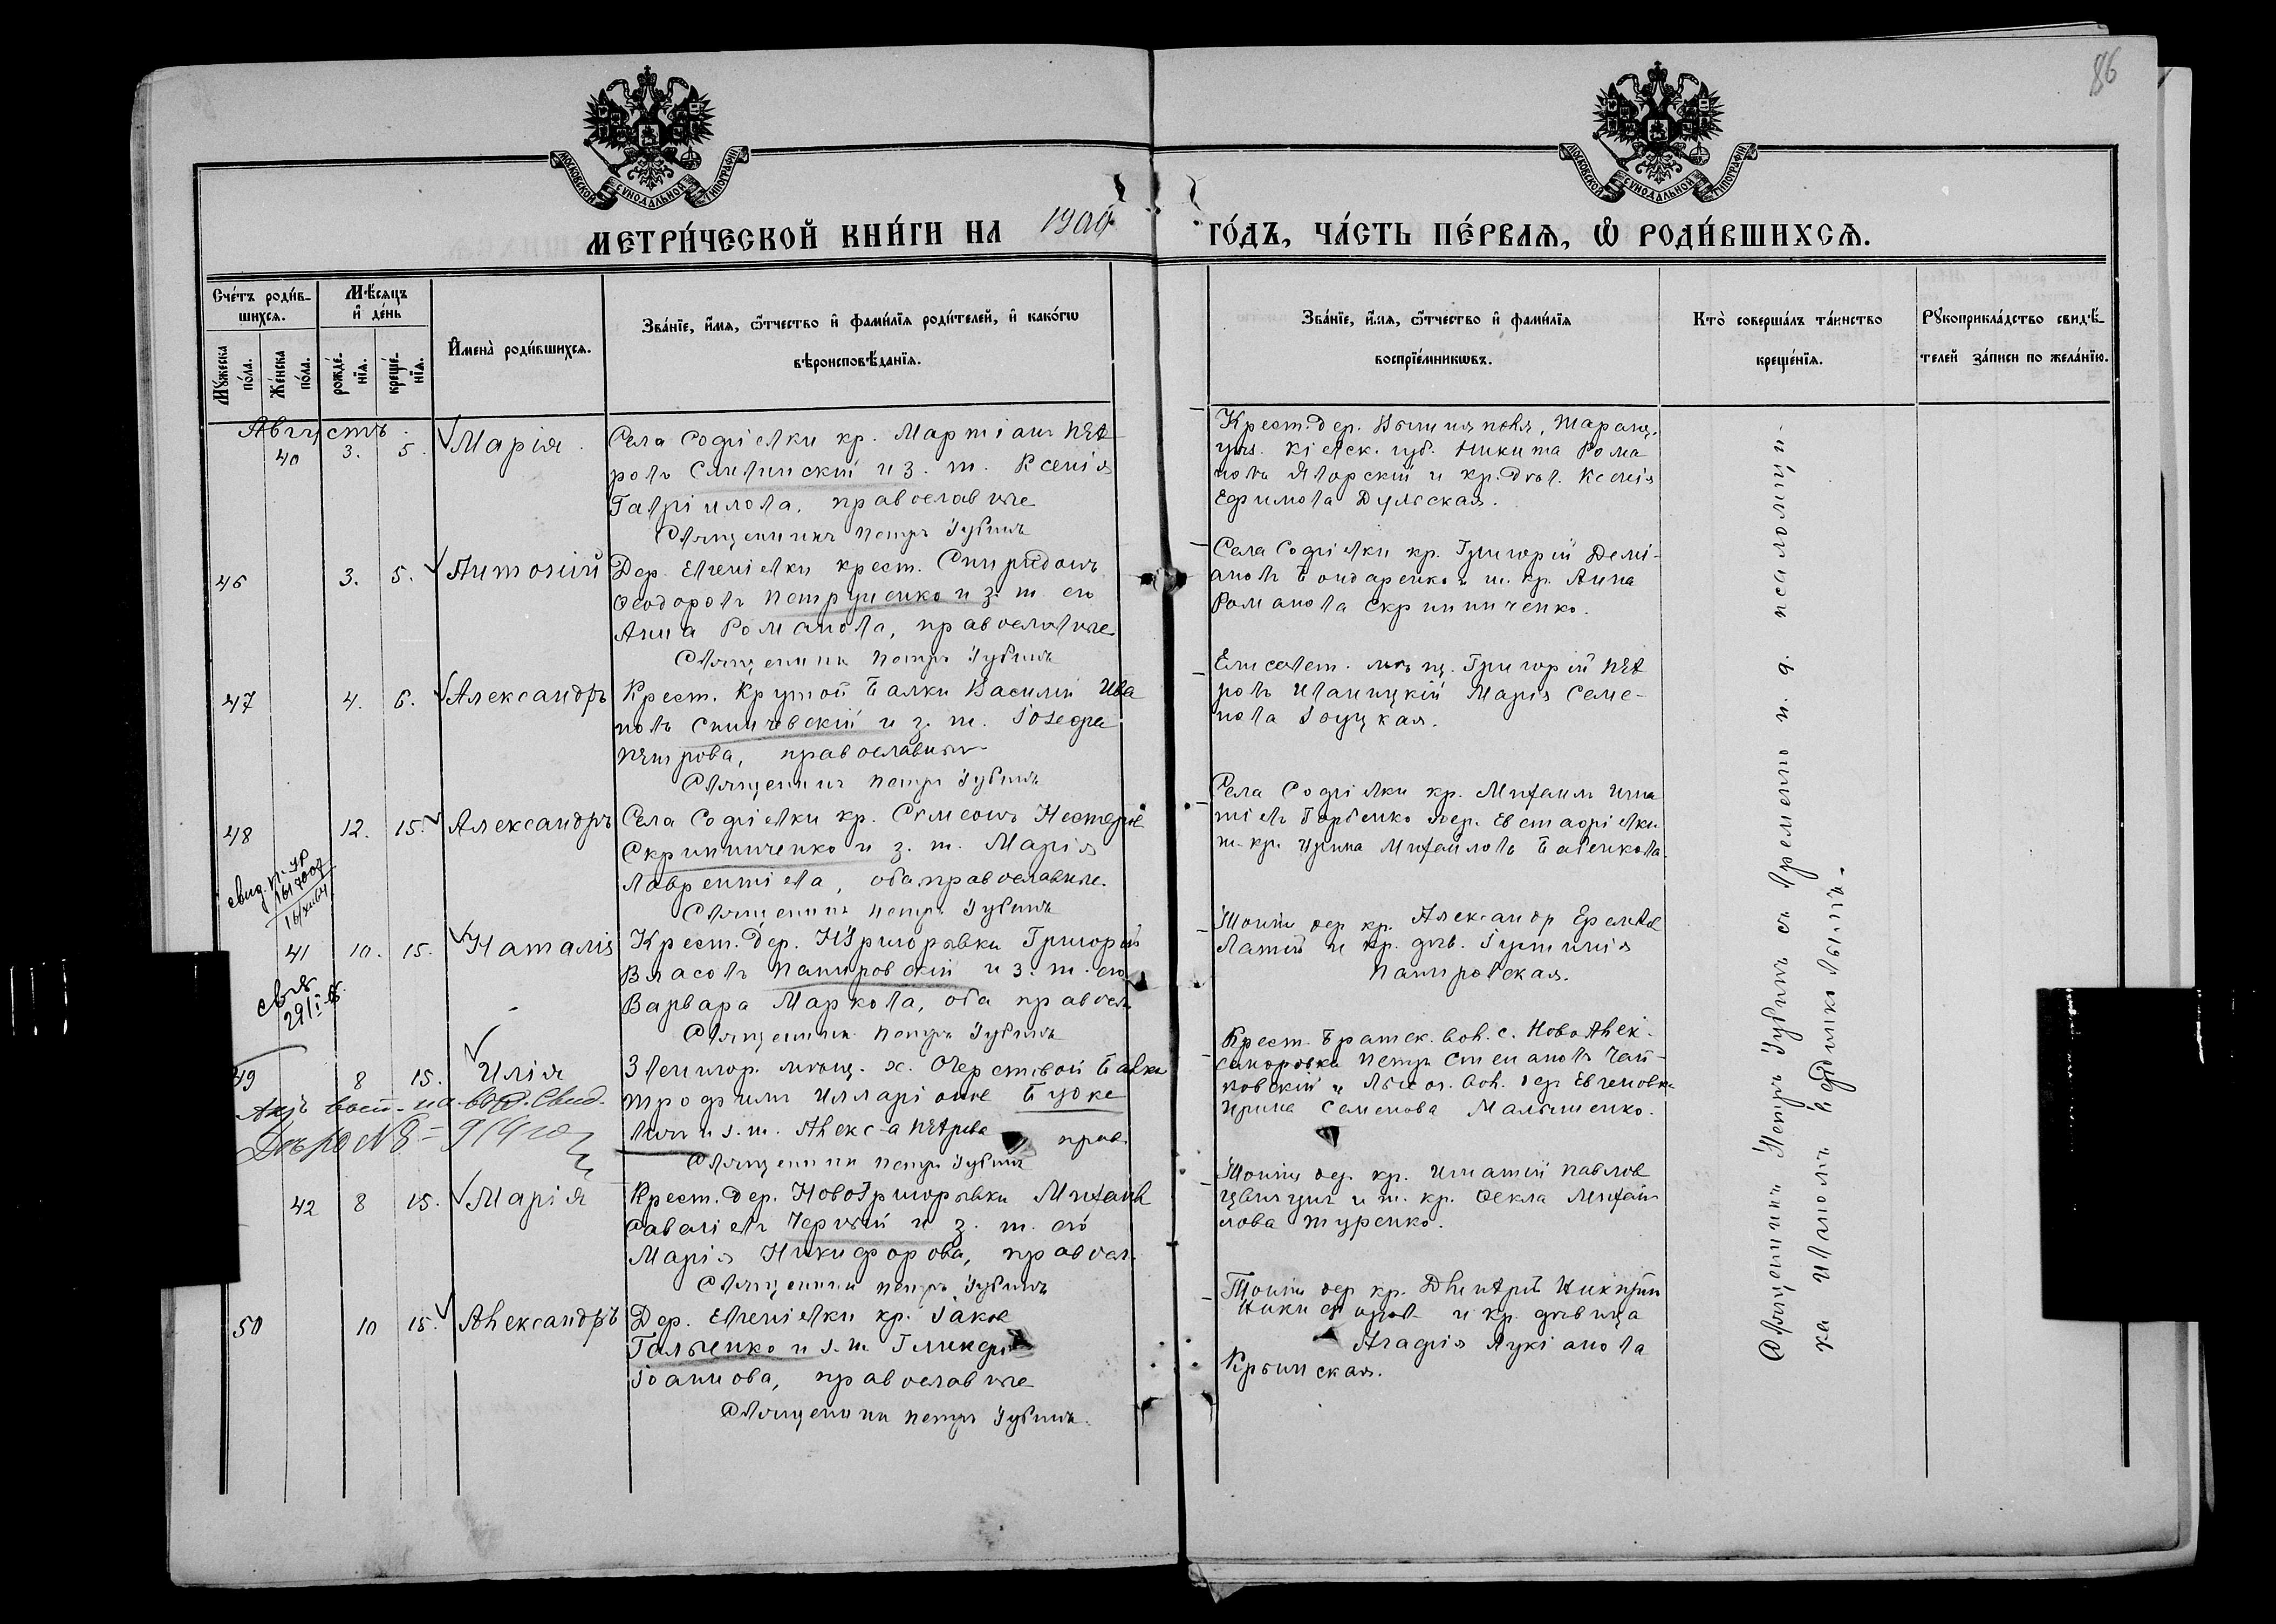 86
МОСКОВСКОЙ СѴНОДАЛЬНОЙ ТИПОГРАФІИ
МОСКОВСКОЙ СѴНОДАЛЬНОЙ ТИПОГРАФІИ
МЕТРИ́ЧЕСКОЙ КНИ́ГИ НА 190 ГО́ДЪ, ЧА́СТЬ ПЕ́РВАѦ, Ѽ РОДИ́ВШИХСѦ.
Сче́тъ роди́в-
шихсѧ.
Мꙋ́жеска по́ла.
Же́нска по́ла.
Мѣ́сѧцъ и҆ де́нь
рожде́-нїѧ.
креще́-нїѧ.
И҆мена̀ роди́вшихсѧ.
Зва́нїе, и҆́мѧ, ѻ҆́тчество и҆ фами́лїѧ роди́телей, и҆ како́гѡ
вѣроисповѣ́данїѧ.
Зва́нїе, и҆́мѧ, ѻ҆́тчество и҆ фами́лїѧ
воспрїе́мникѡвъ.
Кто̀ соверша́лъ та́инство
креще́нїѧ.
Рꙋкоприкла́дство свидѣ́-
телей за́писи по жела́нїю.
Августъ.
40 3. 5. Марія. Села Софіевки кр. Мартіанъ Пет
ровъ Сливинскій и з. ж. Ксенія
Гавріилова, православные
Священникъ Петръ Губинъ
Крест. дер. Таращ.
Кіевск. губ. Никита Рома
новъ Яворскій и кр. дѣв. Ксенія
Ефимова Дульская.
46 3. 5. Антоній Дер. Евгеніевки крест. Спиридонъ
Ѳеодоровъ Петрушенко и з. ж. его
Анна Романова, православные
Священникъ Петръ Губинъ
Села Софіевки кр. Григорій Демі-
ановъ Бондаренко и ж. кр. Анна
Романова Скрипниченко.
47 4. 6. Александръ Крест. Крутой Балки Василій Ива
новъ Спичевскій и з. ж. Іозефа
Петрова, православные
Священникъ Петръ Губинъ
Елисавет. мѣщ. Григорій Пет
ровъ Иваницкій Марія Семе-
нова
48 12. 15. Александръ Села Софіевки кр. Симеонъ Нестеровъ
Скрипниченко и з. ж. Марія
Лаврентіева, оба православные.
Священникъ Петръ Губинъ
Села Софіевки кр. Михаилъ Игна
тіевъ Горбенко дер. Евстафіевки
ж. кр. Ирина Михайлова
41 10. 15. Наталія Крест. дер. Н Григорьвки Григорій
Власовъ Папировскій и з. ж. его
Варвара Маркова, оба правосл.
Священникъ Петръ Губинъ
Тойже дер. кр. Александр
и кр. дѣв. Іустинія
Папировская.
49 8 15. Илія Звенигор. мѣщ. х. Очеретовой Балки
Трофимъ Илларіонов
и з. ж. Алекс-а Петрова прав.
Священникъ Петръ Губинъ
Крест. Братск. вол. с. НовоАлек-
сандровки Петръ Степановъ Чай-
ковскій и Лысог. вол. дер. Евгеновки
Ирина Семенова Малышенко.
42 8 15. Марія Крест. дер. НовоГригорьвки Михаил
Саватіевъ Черный и з. ж. его
Марія Никифорова, правосл.
Священникъ Петръ Губинъ
Тойже дер. кр. Игнатій Павлов
и ж. кр. Ѳекла Михай-
лова Туренко.
50 10 15. Александръ Дер. Евгеніевки кр. Іаков
Гальченко и з. ж. Гликерія
Іоаннова, православные
Священникъ Петръ Губинъ.
Тойже дер. кр. Дмитрій
и кр. дѣвица
Агафія Лукіанова
Крымская.
Священникъ Петръ Губинъ съ временно и. д. псаломщи-
ка Иваномъ